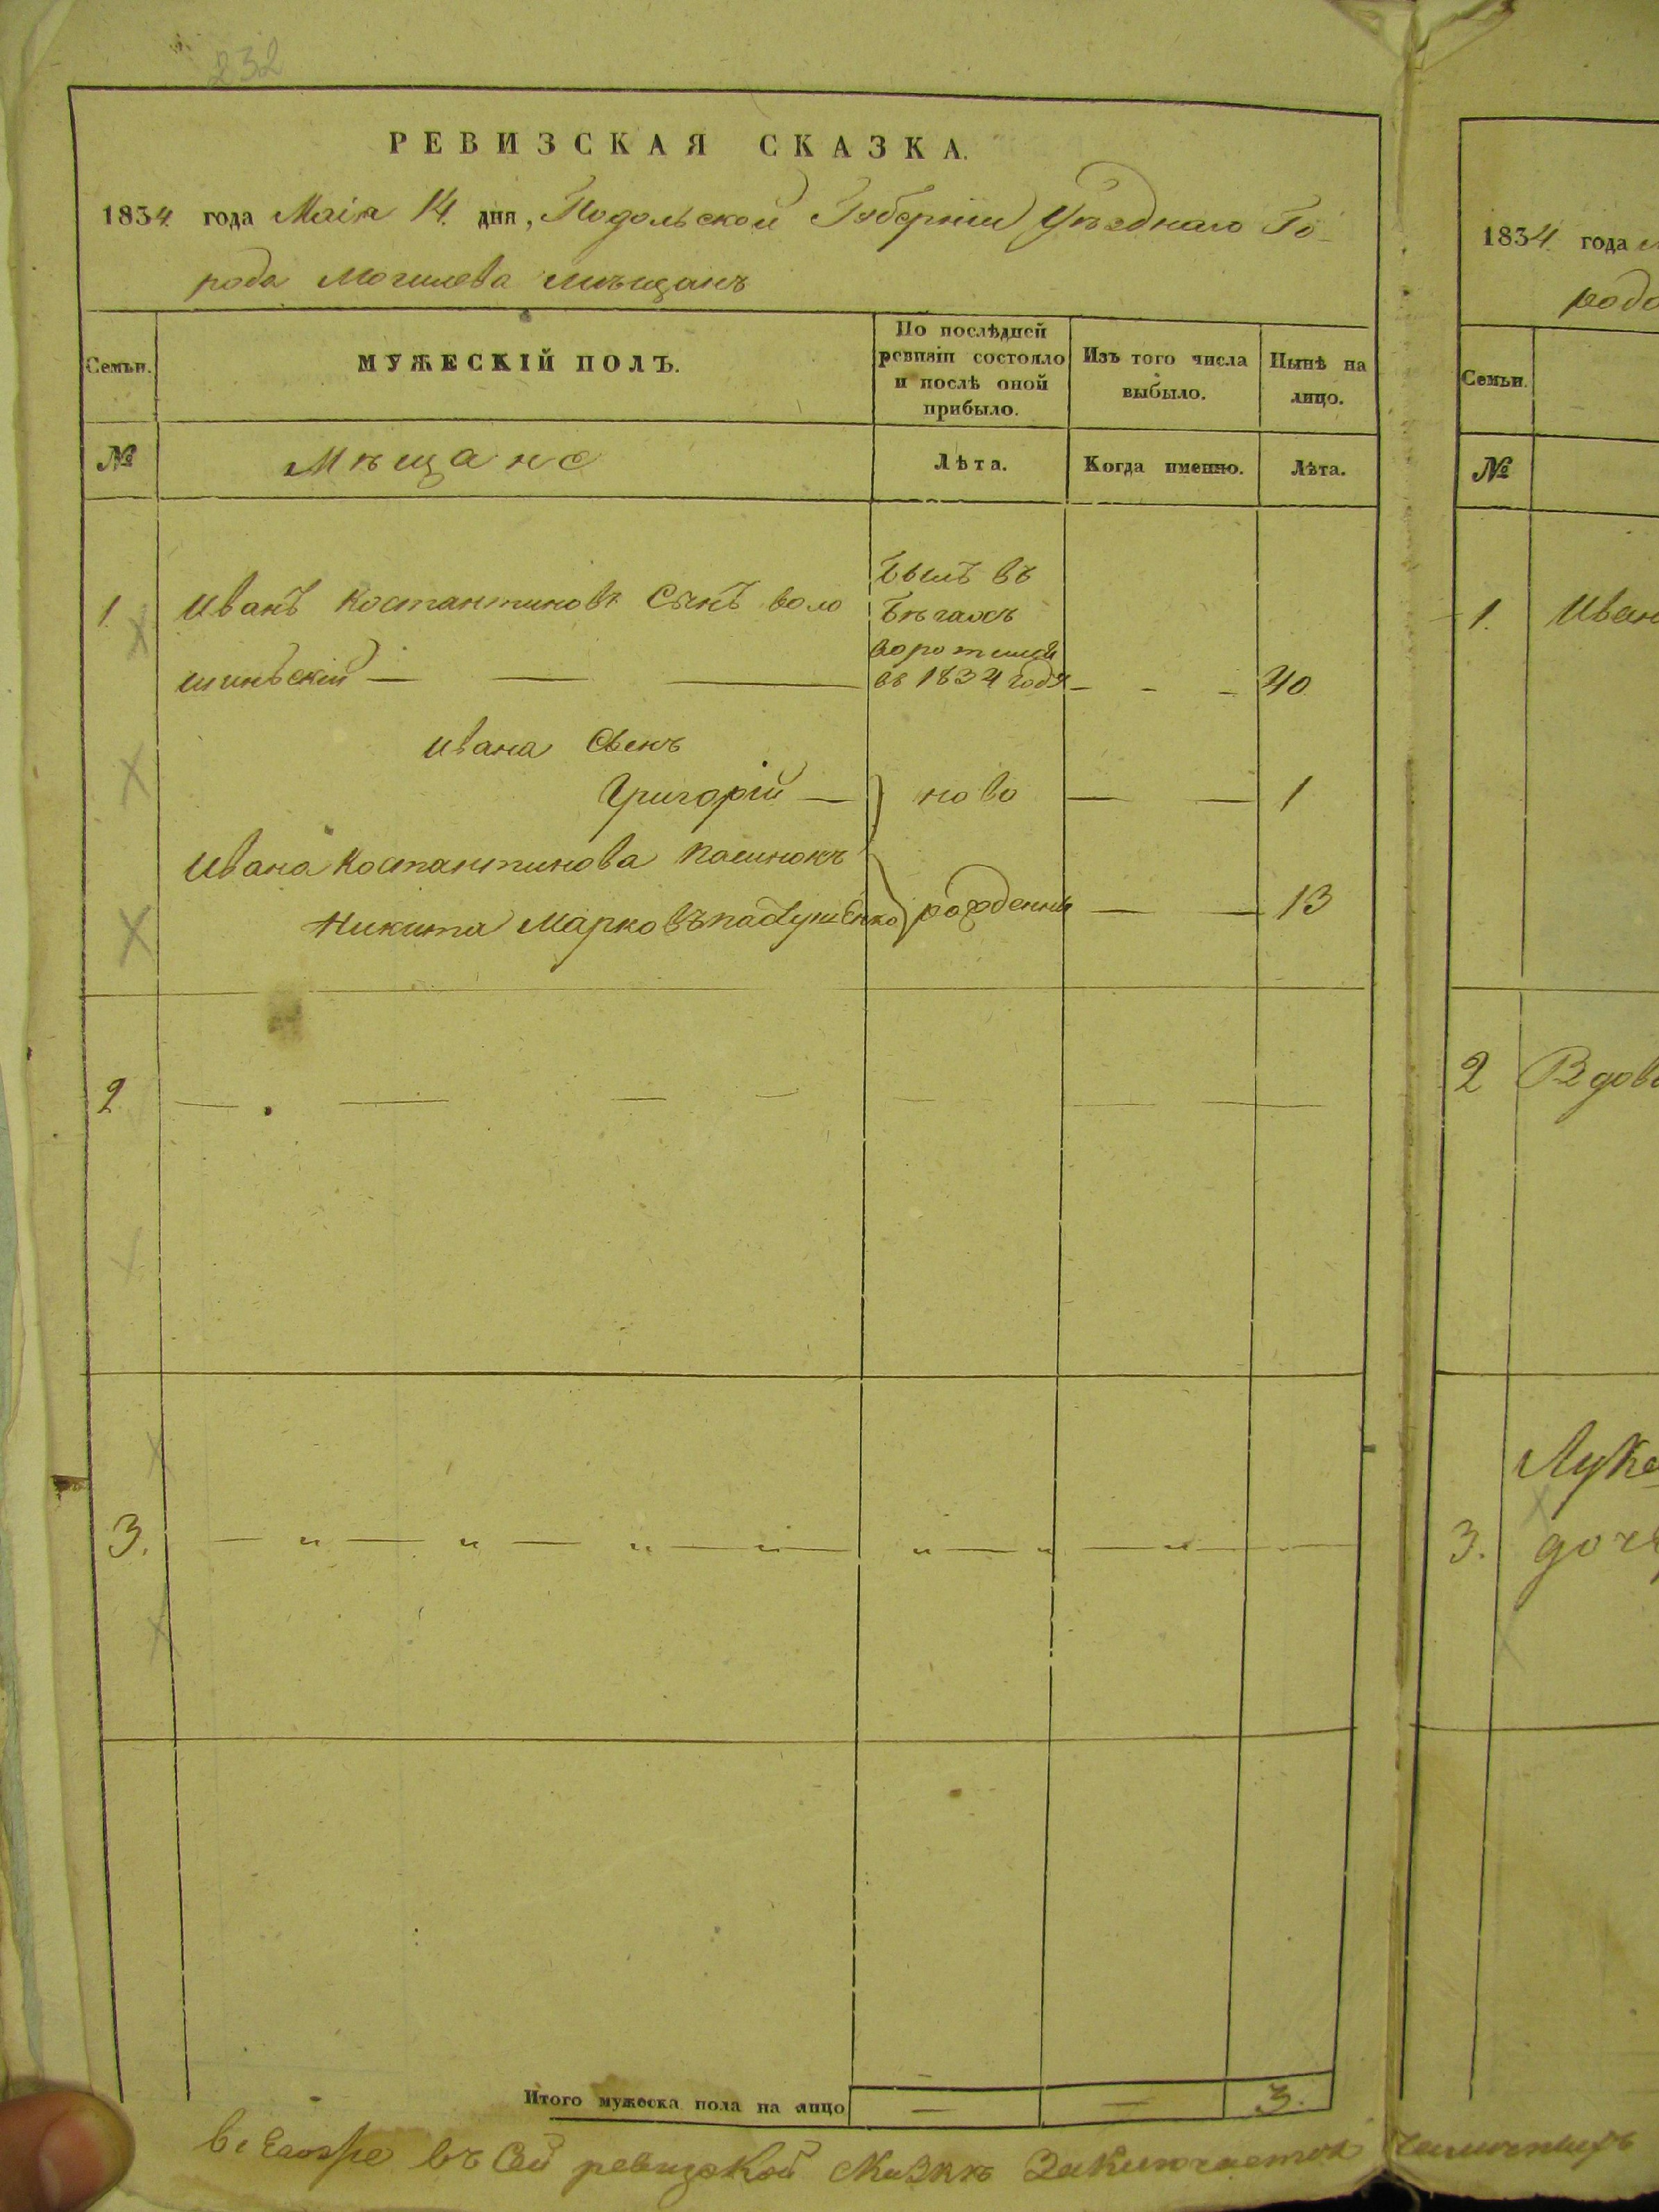 232
РЕВИЗСКАЯ СКАЗКА.
1834 года Маія 14 дня, Подольской Губерніи Уѣзднаго Го-
рода Могилева мѣщанъ
Семьи.
МУЖЕСКІЙ ПОЛЪ.
По послѣдней ревизіи состояло и послѣ оной прибыло.
Изъ того числа выбыло.
Нынѣ на лицо.
№
Мѣщане
Лѣта.
Когда именно.
Лѣта.
1. Иванъ Костантиновъ Сынъ воло
шинъскій — — —
Былъ въ
Бѣгахъ
воротился
въ 1834 годя - - - 40
Ивана Сынъ
Григорій — ново — — 1
Ивана Костантинова пасинокъ
Никита Марковъ рожденны — — 13
2
3.
Итого мужеска пола на лицо — — 3.
въ Сей ревизской сказкѣ Заключается
1834 года
родо
Семьи.
№
1. Иван
2 Вдов
Луке
3. доч